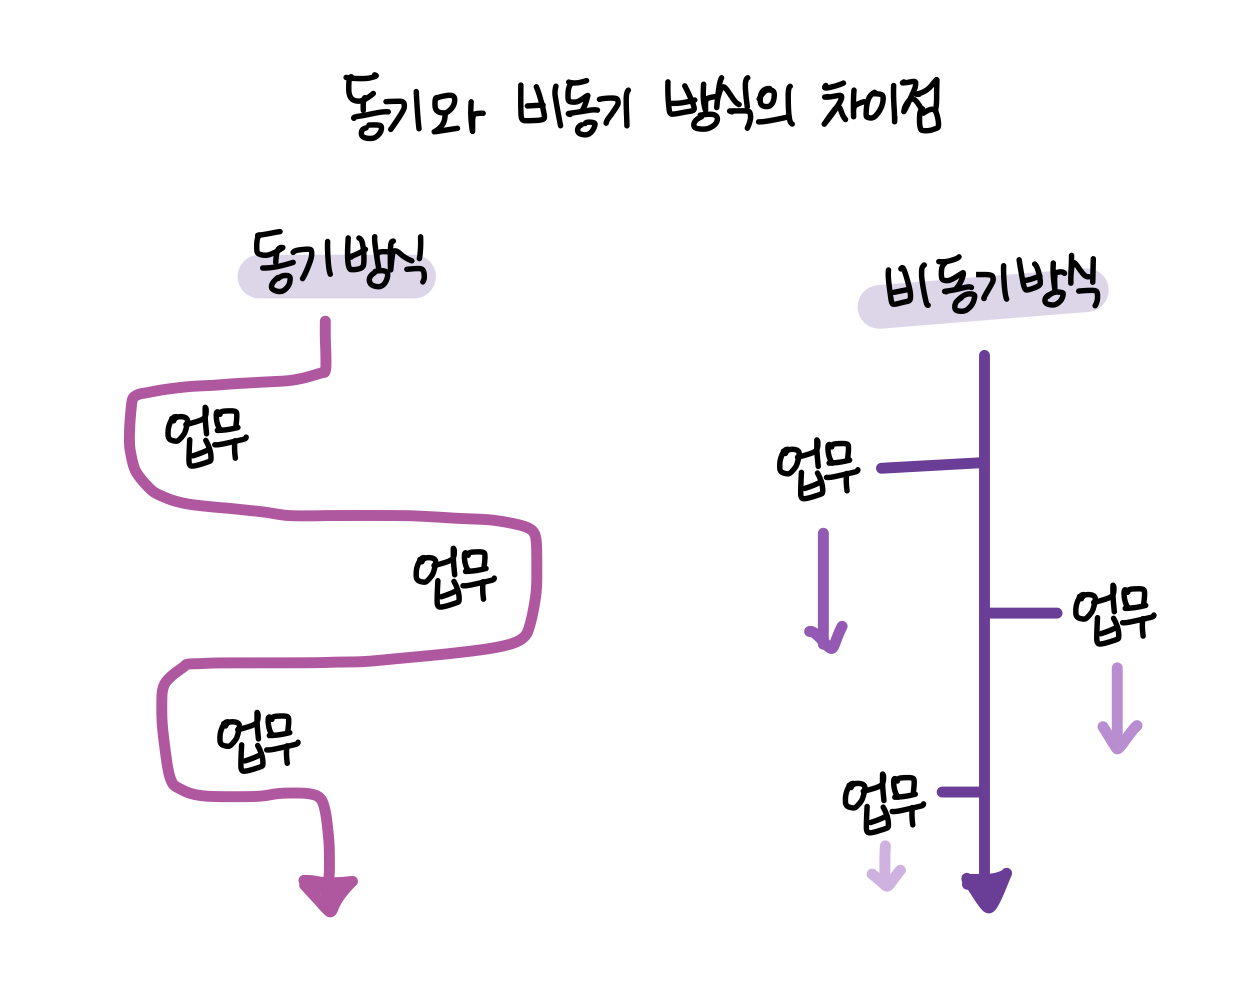 동기와 비동기 방식의 차이점
동기방식
업무
업무
업무
비동기방식
업무
업무
업무